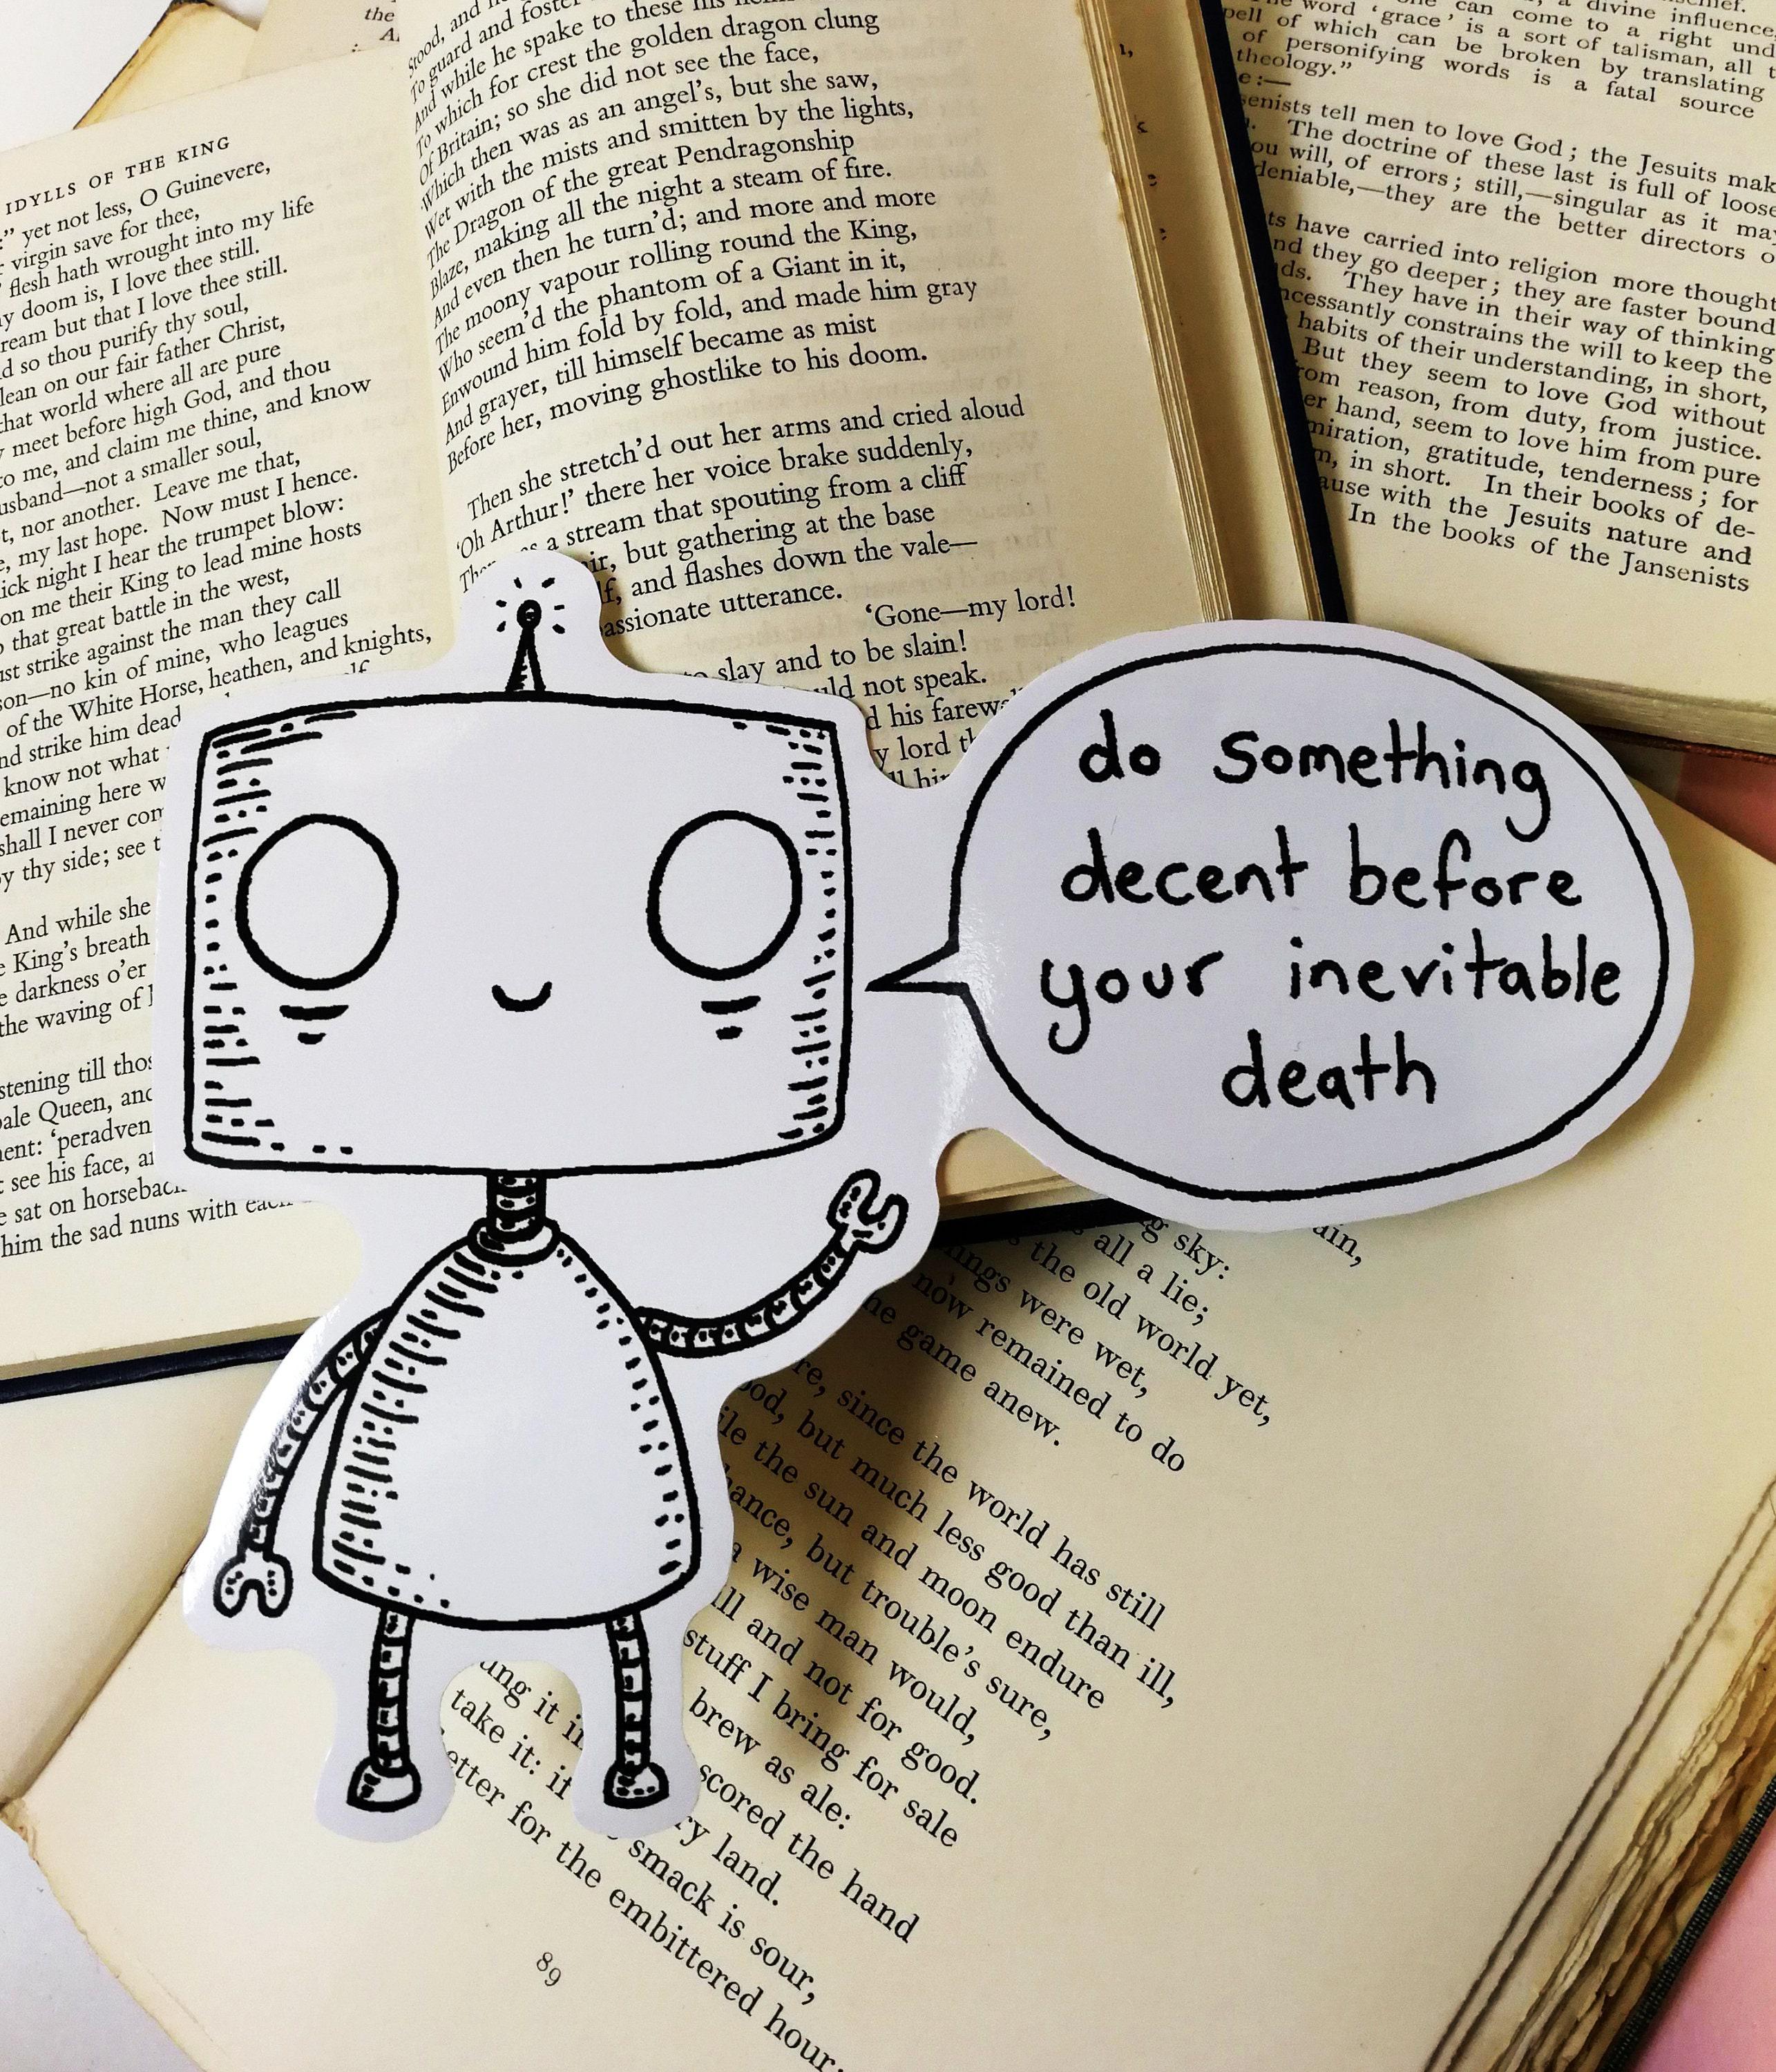 IDYLLS OF THE KING
yet not less, O Guinevere,
virgin save for thee,
flesh hath wrought into my life
doom is, I love thee still.
but that I love thee still.
so thou purify thy soul,
lean on our fair father Christ,
that world where all are pure
meet before high God, and thou
to me, and claim me thine, and know
not a smaller soul,
nor another. Leave me that,
my last hope. Now must I hence.
night I hear the trumpet blow:
on me their King to lead mine hosts
that great battle in the west,
strike against the man they call
no kin of mine, who leagues
of the White Horse, heathen, and knights,
strike him dead
know not what
here
shall I never
by thy side; see
And while she
King's breath
darkness o'er
the waving of
till
Queen, and
see his face,
sat on
him the sad nuns with
Stood, and
To guard and foster
And while he spake to these his
To which for crest the golden dragon clung
Of Britain; so she did not see the face,
Which then was as an angel's, but she saw,
Wet with the mists and smitten by the lights,
The Dragon of the great Pendragonship
Blaze, making all the night a steam of fire.
And even then he turn'd; and more and more
The moony vapour rolling round the King,
Who seem'd the phantom of a Giant in it,
Enwound him fold by fold, and made him gray
And grayer, till himself became as mist
Before her, moving ghostlike to his doom.
Then she stretch'd out her arms and cried aloud
'Oh Arthur!' there her voice brake suddenly,
a stream that spouting from a cliff
but gathering at the base
and flashes down the vale—
utterance.
'Gone—my lord!
slay and to be slain!
not speak.
his
lord
word 'grace' is a sort of talisman, all
of which can be broken by translating
of personifying words is a fatal source
theology."
tell men to love God; the Jesuits
The doctrine of these last is full of loose
will, of errors; still,—singular as it may
they are the better directors
have carried into religion more thought
they go deeper; they are faster bound
They have in their way of thinking
constrains the will to keep the
habits of their understanding, in short,
But they seem to love God without
reason, from duty, from justice.
hand, seem to love him from pure
gratitude, tenderness; for
in short. In their books of de-
with the Jesuits nature and
In the books of the Jansenists
do something
decent before
your inevitable
death
sky:
all a lie;
the old world yet,
were wet,
now remained to do
game anew.
since the world has still
but much less good than ill,
the sun and moon endure
but trouble's sure,
a wise man would,
and not for good.
stuff I bring for sale
brew as ale:
scored the hand
land.
take it: if
smack is sour,
for the embittered hour;
89